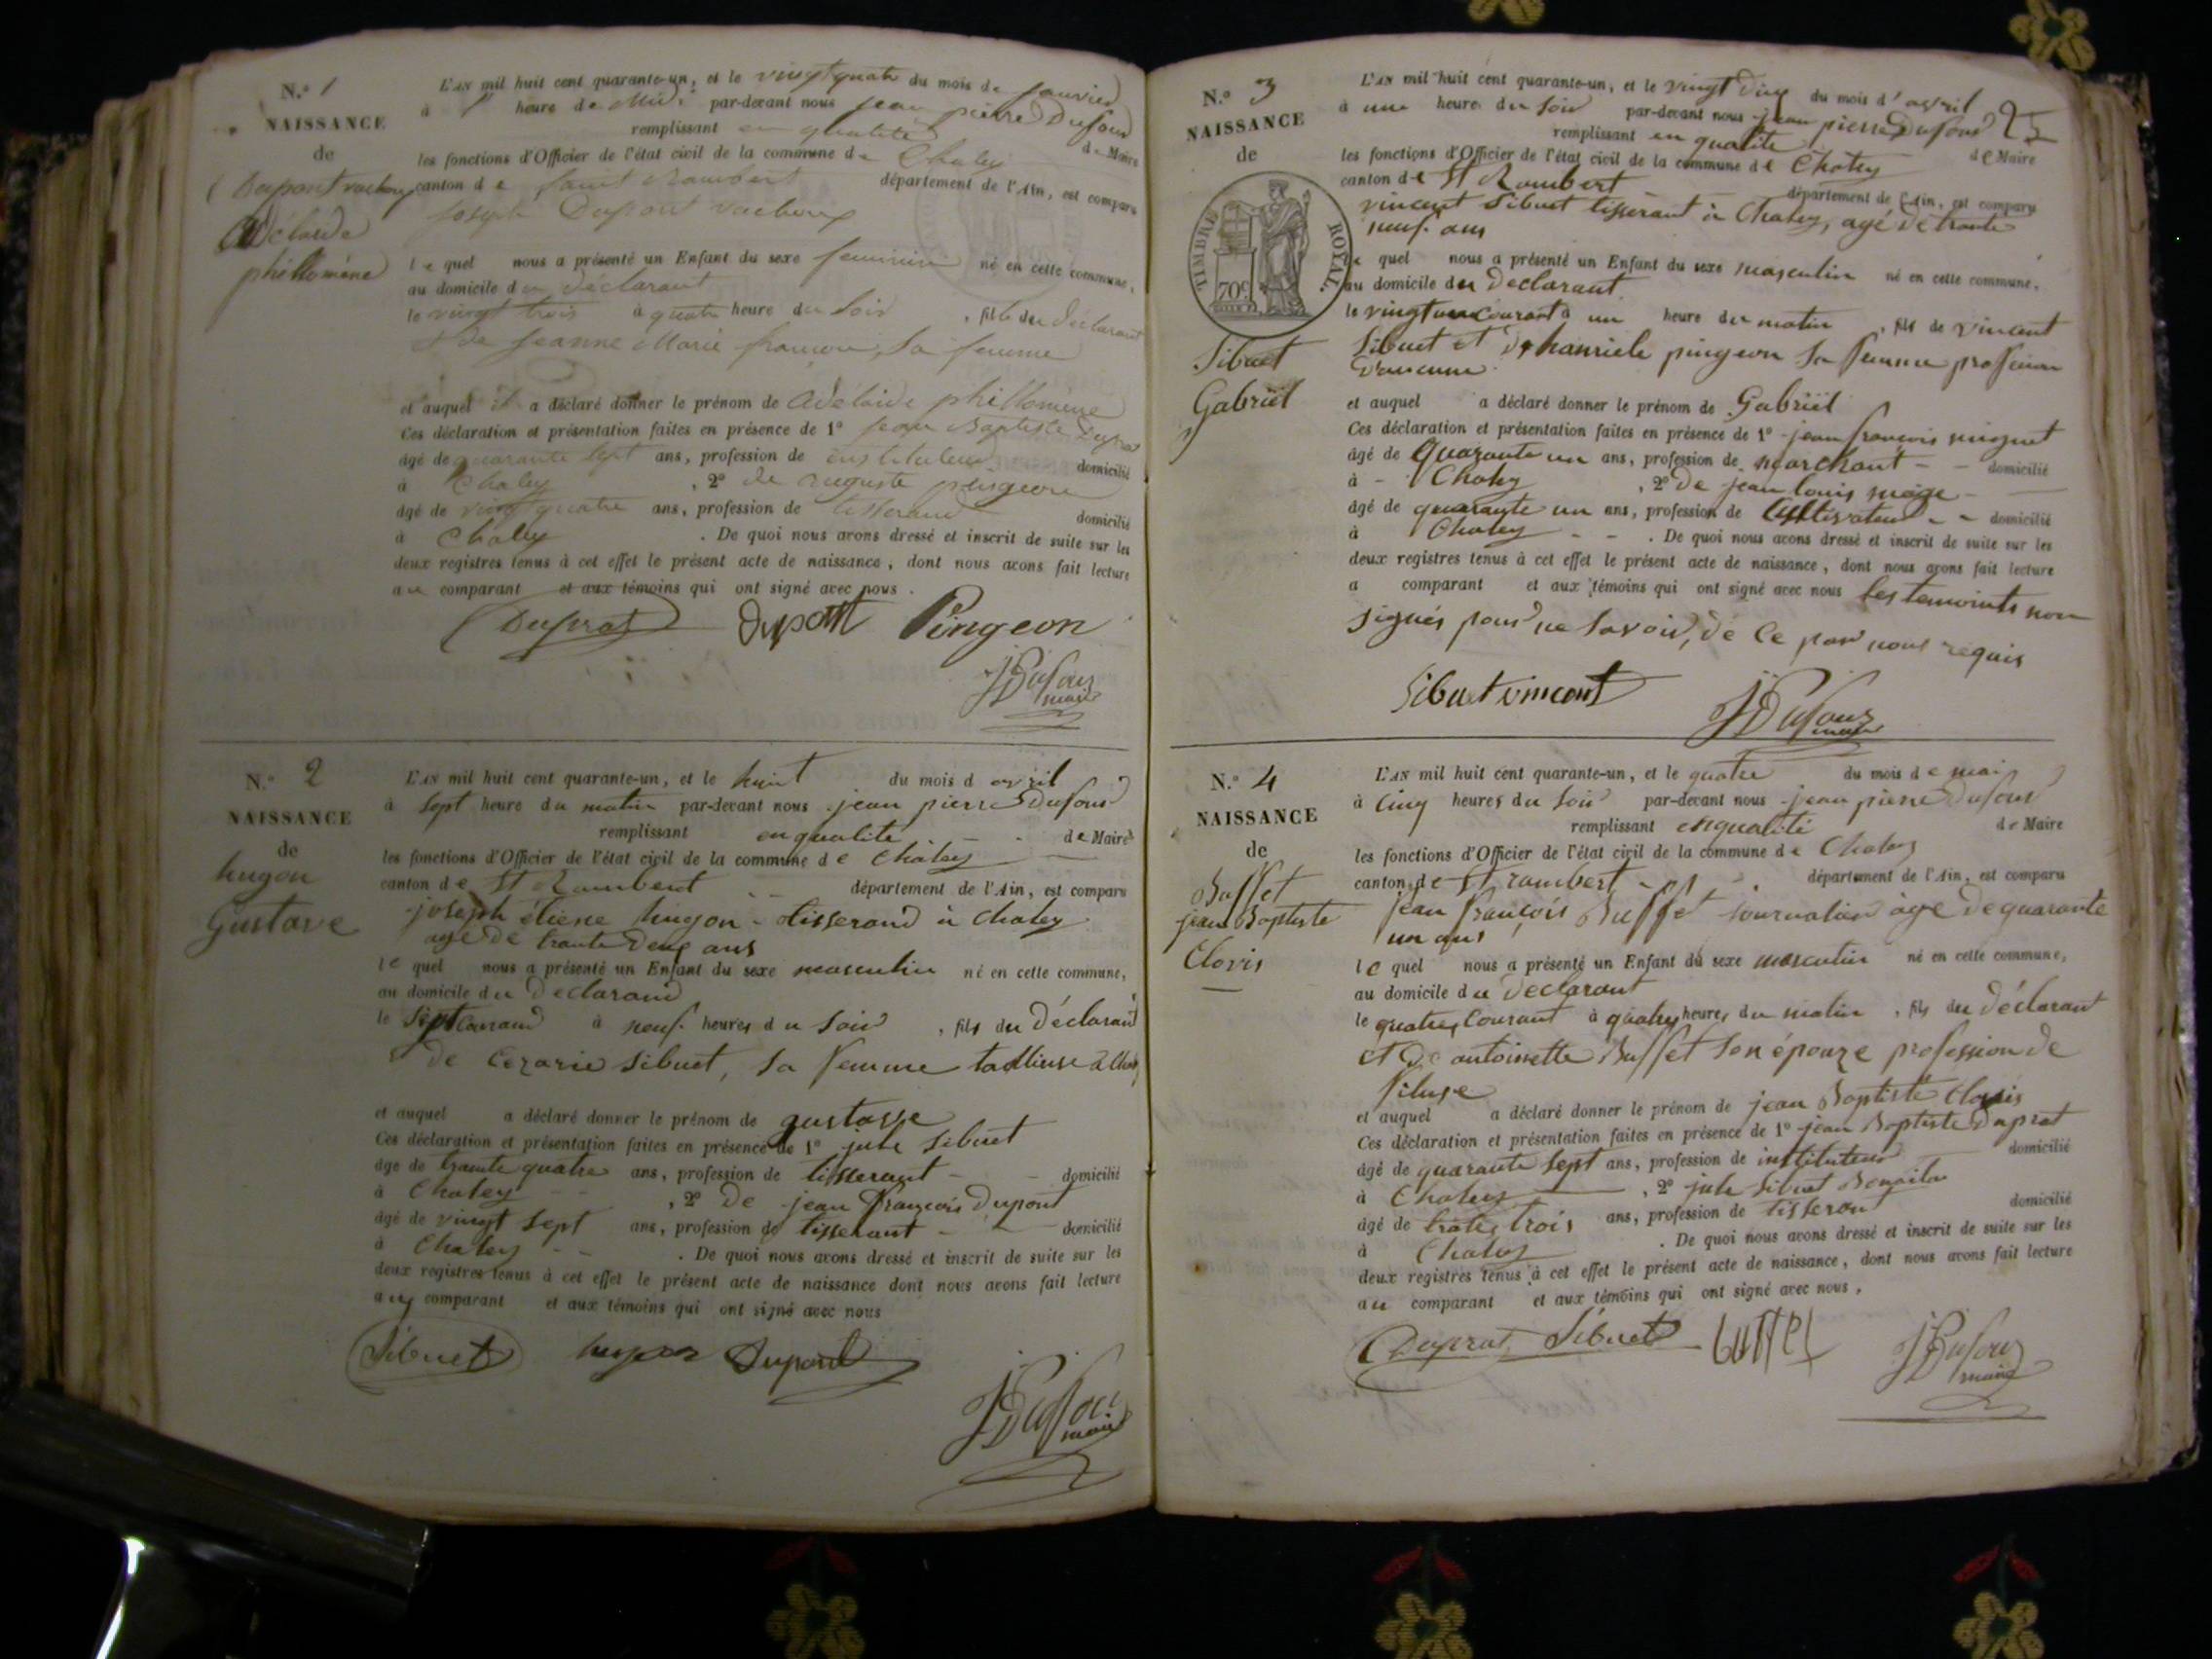 N.° 1
NAISSANCE
de
Dupont vachoux
Adélaide
phillomène
L'AN mil huit cent quarante-un, et le vingt quatre du mois de janvier
à 1 heure de Midi par-devant nous jean pierre Dufour
remplissant en qualité de Maire
les fonctions d'Officier de l'état civil de la commune de Chaley
canton de saint Rambert département de l'Ain, est comparu
joseph Dupont vachoux
le quel nous a présenté un Enfant du sexe feminin né en cette commune,
au domicile du déclarant
le vingt trois à quatre heure du soir, fille du déclarant
& de jeanne Marie sa femme
et auquel il a déclaré donner le prénom de adélaide phillomène
Ces déclaration et présentation faites en présence de 1° jean Baptiste Duprat
âgé de quarante sept ans, profession de instituteur domicilié
à Chaley, 2° de auguste pingeon
âgé de vingt quatre ans, profession de tisserand domicilié
à Chaley. De quoi nous avons dressé et inscrit de suite sur les
deux registres tenus à cet effet le présent acte de naissance, dont nous avons fait lecture
au comparant et aux témoins qui ont signé avec nous.
Duprat Dupont Pingeon
JPDufour
maire
N.° 2
NAISSANCE
de
hugon
Gustave
L'AN mil huit cent quarante-un, et le huit du mois d avril
à sept heure du matin par-devant nous jean pierre Dufour
remplissant en qualité de Maire
les fonctions d'Officier de l'état civil de la commune de Chaley
canton de St Rambert département de l'Ain, est comparu
joseph étiene hugon tisserand à Chaley
agé de trante deux ans
le quel nous a présenté un Enfant du sexe masculin né en cette commune,
au domicile du declarand
le sept courand à neuf heures du soir, fils du déclarand
& de Cezarie Sibuet, sa femme tallieuse à Chaley
et auquel a déclaré donner le prénom de gustave
Ces déclaration et présentation faites en présence de 1° jule Sibuet
âgé de trante quatre ans, profession de tisserant domicilié
à Chaley, 2° De jean françois Dupont
âgé de vingt sept ans, profession de tisserant domicilié
à Chaley. De quoi nous avons dressé et inscrit de suite sur les
deux registres tenus à cet effet le présent acte de naissance dont nous avons fait lecture
aux comparant et aux témoins qui ont signé avec nous
Sibuet hugon Dupont
JPDufour
maire
25
N.° 3
NAISSANCE
de
TIMBRE ROYAL
70c
Sibuet
Gabriël
L'AN mil huit cent quarante-un, et le vingt deux du mois d'avril
à une heure du soir par-devant nous jean pierre Dufour
remplissant en qualité de Maire
les fonctions d'Officier de l'état civil de la commune de Chaley
canton de St Rambert département de l'Ain, est comparu
vincent Sibuet tisserant à Chaley, agé de trante
neuf ans
le quel nous a présenté un Enfant du sexe masculin né en cette commune,
au domicile du Declarant
le vingt un courant à un heure du matin, fils de vincent
Sibuet et de pingeon sa femme profession
d'aucune
et auquel a déclaré donner le prénom de Gabriël
Ces déclaration et présentation faites en présence de 1° jean françois
âgé de quarante un ans, profession de marchant domicilié
à Chaley, 2° De jean louis
âgé de quarante un ans, profession de Cultivateur domicilié
à Chaley. De quoi nous avons dressé et inscrit de suite sur les
deux registres tenus à cet effet le présent acte de naissance, dont nous avons fait lecture
a comparant et aux témoins qui ont signé avec nous les temoints non
signés pour ne savoir, de ce par nous requis
Sibuet vincent JPDufour
maire
N.° 4
NAISSANCE
de
Buffet
jean Baptiste
Clovis
L'AN mil huit cent quarante-un, et le quatre du mois de mai
à cinq heures du soir par-devant nous jean pierre Dufour
remplissant en qualité de Maire
les fonctions d'Officier de l'état civil de la commune de Chaley
canton de St rambert département de l'Ain, est comparu
jean françois Buffet journalier agé de quarante
un ans
le quel nous a présenté un Enfant du sexe masculin né en cette commune,
au domicile du Declarant
le quatre courant à quatre heures du matin, fils du déclarant
et De antoinette Buffet son épouze profession de
filuse
et auquel a déclaré donner le prénom de jean Baptiste Clovis
Ces déclaration et présentation faites en présence de 1° jean Baptiste Duprat
âgé de quarante sept ans, profession de instituteur domicilié
à Chaley, 2° jule Sibuet
âgé de trois ans, profession de tisserant domicilié
à Chaley. De quoi nous avons dressé et inscrit de suite sur les
deux registres tenus à cet effet le présent acte de naissance, dont nous avons fait lecture
au comparant et aux témoins qui ont signé avec nous,
Duprat Sibuet Buffet
JPDufour
maire